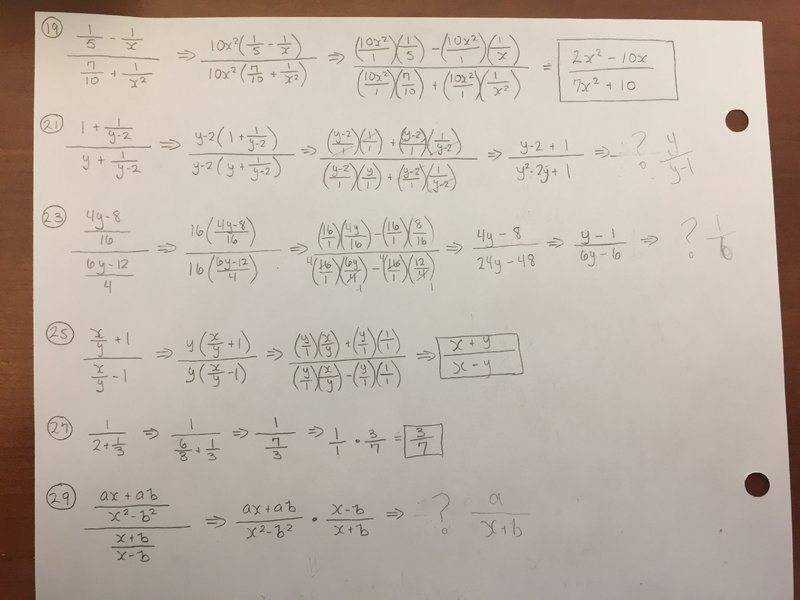 19) (1/5 - 1/x) / (7/10 + 1/x²) ⇒ 10x²(1/5 - 1/x) / 10x²(7/10 + 1/x²) ⇒ ((10x²/1)(1/5) - (10x²/1)(1/x)) / ((10x²/1)(7/10) + (10x²/1)(1/x²)) = (2x² - 10x) / (7x² + 10)
21) (1 + 1/(y-2)) / (y + 1/(y-2)) ⇒ y-2(1 + 1/(y-2)) / y-2(y + 1/(y-2)) ⇒ ((y-2/1)(1/1) + (y-2/1)(1/y-2)) / ((y-2/1)(y/1) + (y-2/1)(1/y-2)) ⇒ (y-2+1) / (y²-2y+1) ⇒ ? y/(y-1)
23) ((4y-8)/16) / ((6y-12)/4) ⇒ 16((4y-8)/16) / 16((6y-12)/4) ⇒ ((16/1)(4y/16) - (16/1)(8/16)) / (4(16/1)(6y/4)1 - 4(16/1)(12/4)1) ⇒ (4y-8) / (24y-48) ⇒ (y-1) / (6y-6) ⇒ ? 1/6
25) (x/y + 1) / (x/y - 1) ⇒ y(x/y + 1) / y(x/y - 1) ⇒ ((y/1)(x/y) + (y/1)(1/1)) / ((y/1)(x/y) - (y/1)(1/1)) ⇒ (x+y) / (x-y)
27) 1 / (2 + 1/3) ⇒ 1 / (6/3 + 1/3) ⇒ 1 / (7/3) ⇒ 1/1 · 3/7 = 3/7
29) ((ax+ab)/(x²-b²)) / ((x+b)/(x-b)) ⇒ (ax+ab)/(x²-b²) · (x-b)/(x+b) ⇒ ? a/(x+b)